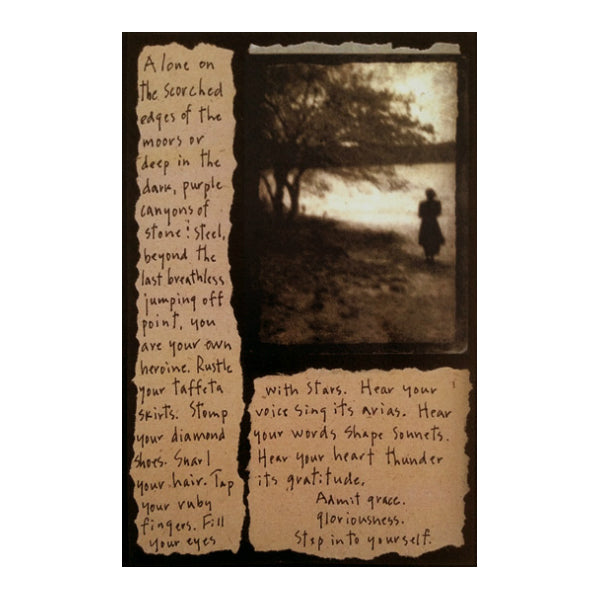 Alone on
the scorched
edges of the
moors or
deep in the
dark, purple
canyons of
stone & steel,
beyond the
last breathless
jumping off
point, you
are your own
heroine. Rustle
your taffeta
skirts. Stomp
your diamond
shoes. Snarl
your hair. Tap
your ruby
fingers. Fill
your eyes
with stars. Hear your
voice sing its arias. Hear
your words shape sonnets.
Hear your heart thunder
its gratitude.
Admit grace.
gloriousness.
Step into yourself.